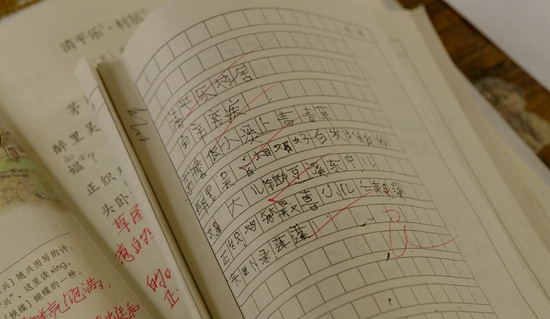 清平乐·村居
茅
醉里吴
媪？
正织
头卧
草屋
的。
正
兴〉随兴而写的诗。
兴”，这里读xìng。
蛱蝶〕蝴蝶的一种。
清平乐村居
辛弃疾
茅檐低小溪上青青草
醉里吴音相媚好白发谁家翁
媪大儿锄豆溪东中儿
正织鸡笼最喜小儿亡赖溪
头卧剥莲蓬